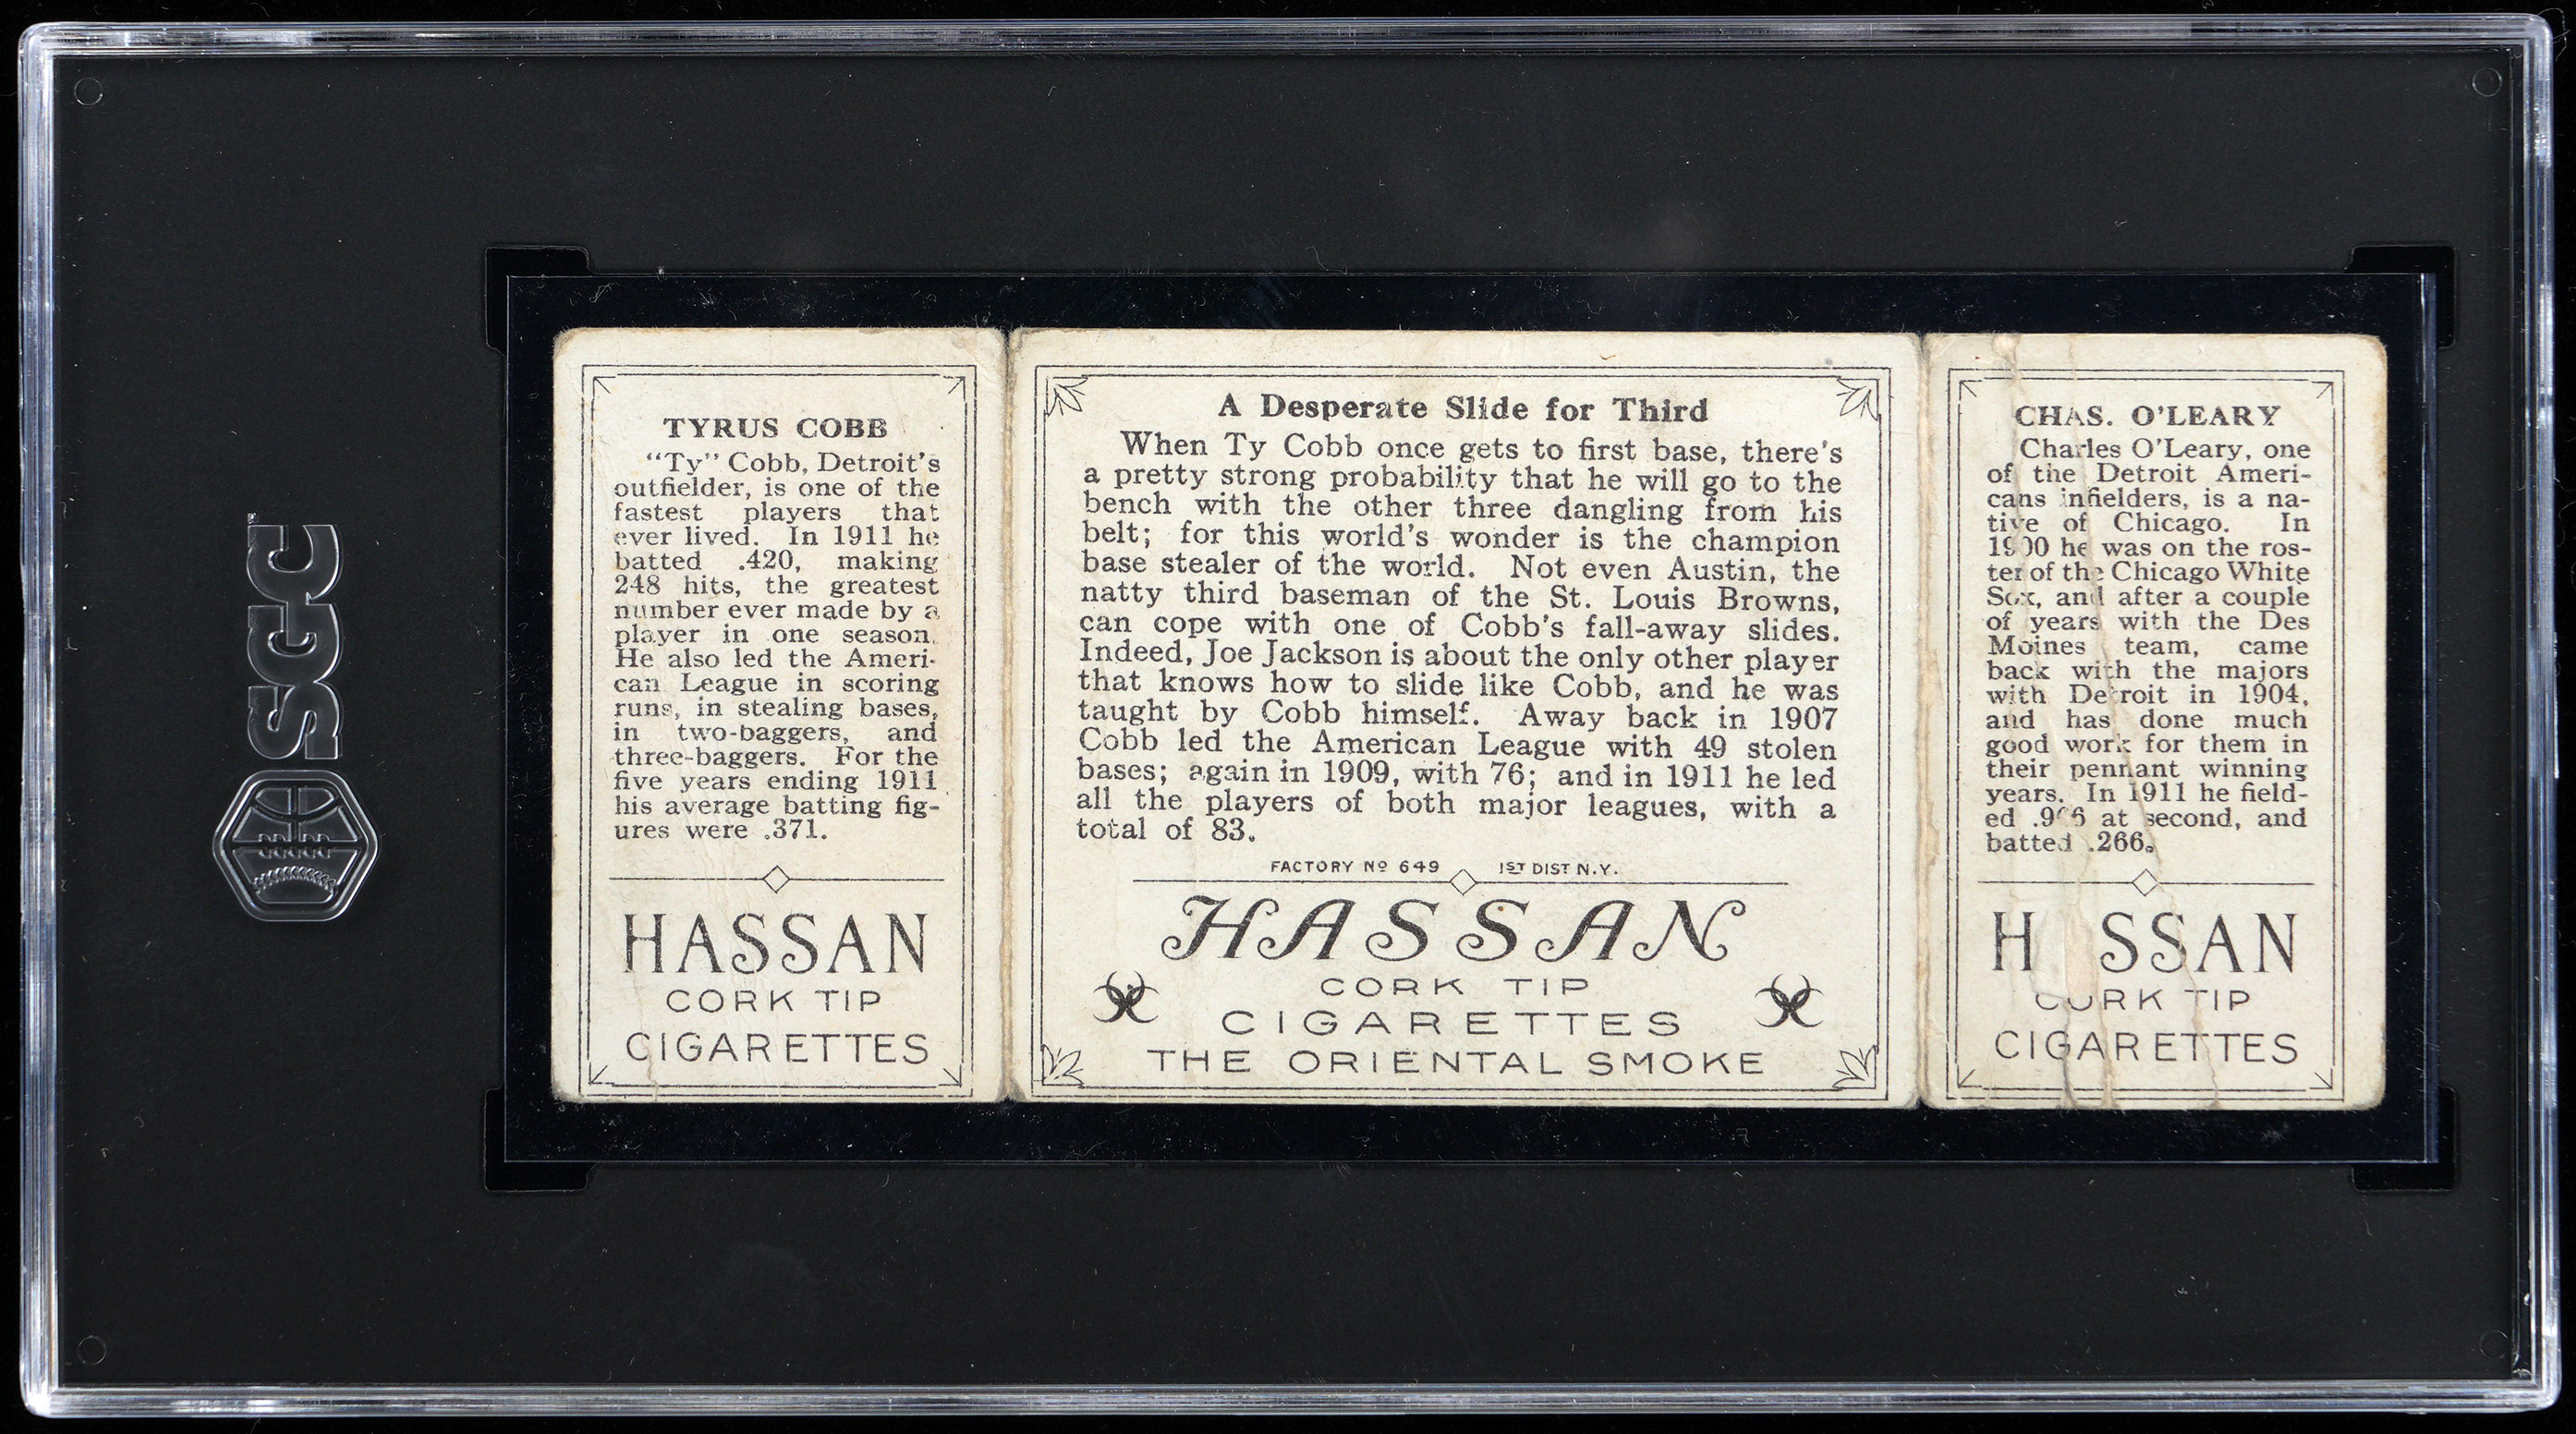 SGC
TYRUS COBB
"Ty" Cobb, Detroit's
outfielder, is one of the
fastest players that
ever lived. In 1911 he
batted .420, making
248 hits, the greatest
number ever made by a
player in one season.
He also led the Ameri-
can League in scoring
runs, in stealing bases,
in two-baggers, and
three-baggers. For the
five years ending 1911
his average batting fig-
ures were .371.
HASSAN
CORK TIP
CIGARETTES
A Desperate Slide for Third
When Ty Cobb once gets to first base, there's
a pretty strong probability that he will go to the
bench with the other three dangling from his
belt; for this world's wonder is the champion
base stealer of the world. Not even Austin, the
natty third baseman of the St. Louis Browns,
can cope with one of Cobb's fall-away slides.
Indeed, Joe Jackson is about the only other player
that knows how to slide like Cobb, and he was
taught by Cobb himself. Away back in 1907
Cobb led the American League with 49 stolen
bases; again in 1909, with 76; and in 1911 he led
all the players of both major leagues, with a
total of 83.
FACTORY Nº 649 1ST DIST N.Y.
HASSAN
CORK TIP
CIGARETTES
THE ORIENTAL SMOKE
CHAS. O'LEARY
Charles O'Leary, one
of the Detroit Ameri-
cans infielders, is a na-
tive of Chicago. In
1900 he was on the ros-
ter of the Chicago White
Sox, and after a couple
of years with the Des
Moines team, came
back with the majors
with Detroit in 1904,
and has done much
good work for them in
their pennant winning
years. In 1911 he field-
ed at second, and
batted .266.
HASSAN
CORK TIP
CIGARETTES